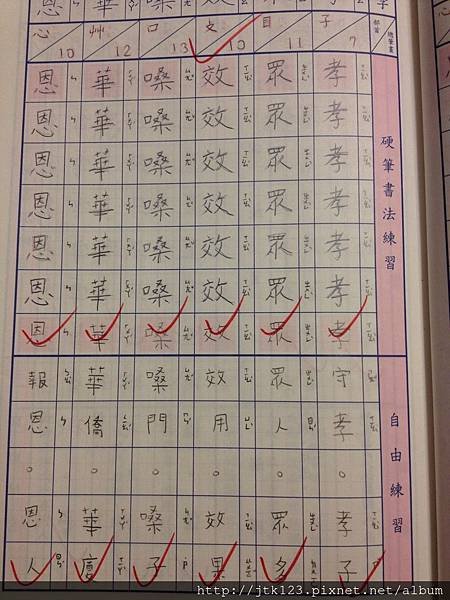 硬筆書法練習
自由練習
子 7
孝孝孝孝孝孝孝
守孝。孝子
目 11
眾眾眾眾眾眾眾
眾人。眾多
攵 10
效效效效效效效
效用。效果
口 13
嗓嗓嗓嗓嗓嗓嗓
嗓門。嗓子
艸 12
華華華華華華華
華僑。華夏
心 10
恩恩恩恩恩恩恩
報恩。恩人
http://jtk123.pixnet.net/album